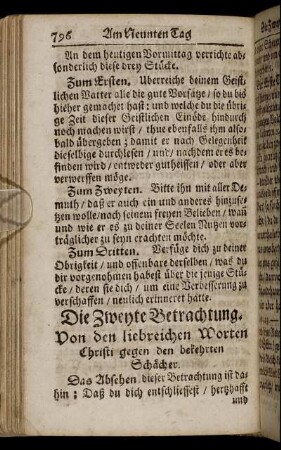 796 Am Neunten Tag
An dem heutigen Vormittag verrichte ab=
sonderlich diese drey Stücke.
Zum Ersten. Uberreiche deinem Geist=
lichen Vatter alle die gute Vorsätze / so du bis
hieher gemachet hast: und welche du die übri=
ge Zeit dieser Geistlichen Einöde hindurch
noch machen wirst / thue ebenfalls ihm also=
bald übergeben; damit er nach Gelegenheit
dieselbige durchlesen / und nachdem er es be=
finden wird / entweder gutheissen / oder aber
verwerffen möge.
Zum Zweyten. Bitte ihn mit aller De=
muth / daß er auch ein und anderes hinzuse=
tzen wolle / nach seinem freyen Belieben / wañ
und wie er es zu deiner Seelen Nutzen vor=
träglicher zu seyn erachten möchte.
Zum Dritten. Verfüge dich zu deiner
Obrigkeit / und offenbare derselben / was du
dir vorgenohmen habest über die jenige Stü=
cke / deren sie dich / um eine Verbesserung zu
verschaffen / neulich erinneret hatte.
Die Zweyte Betrachtung.
Von den liebreichen Worten
Christi gegen den bekehrten
Schächer.
Das Absehen dieser Betrachtung ist da=
hin: Daß du dich entschliessest / hertzhafft
und